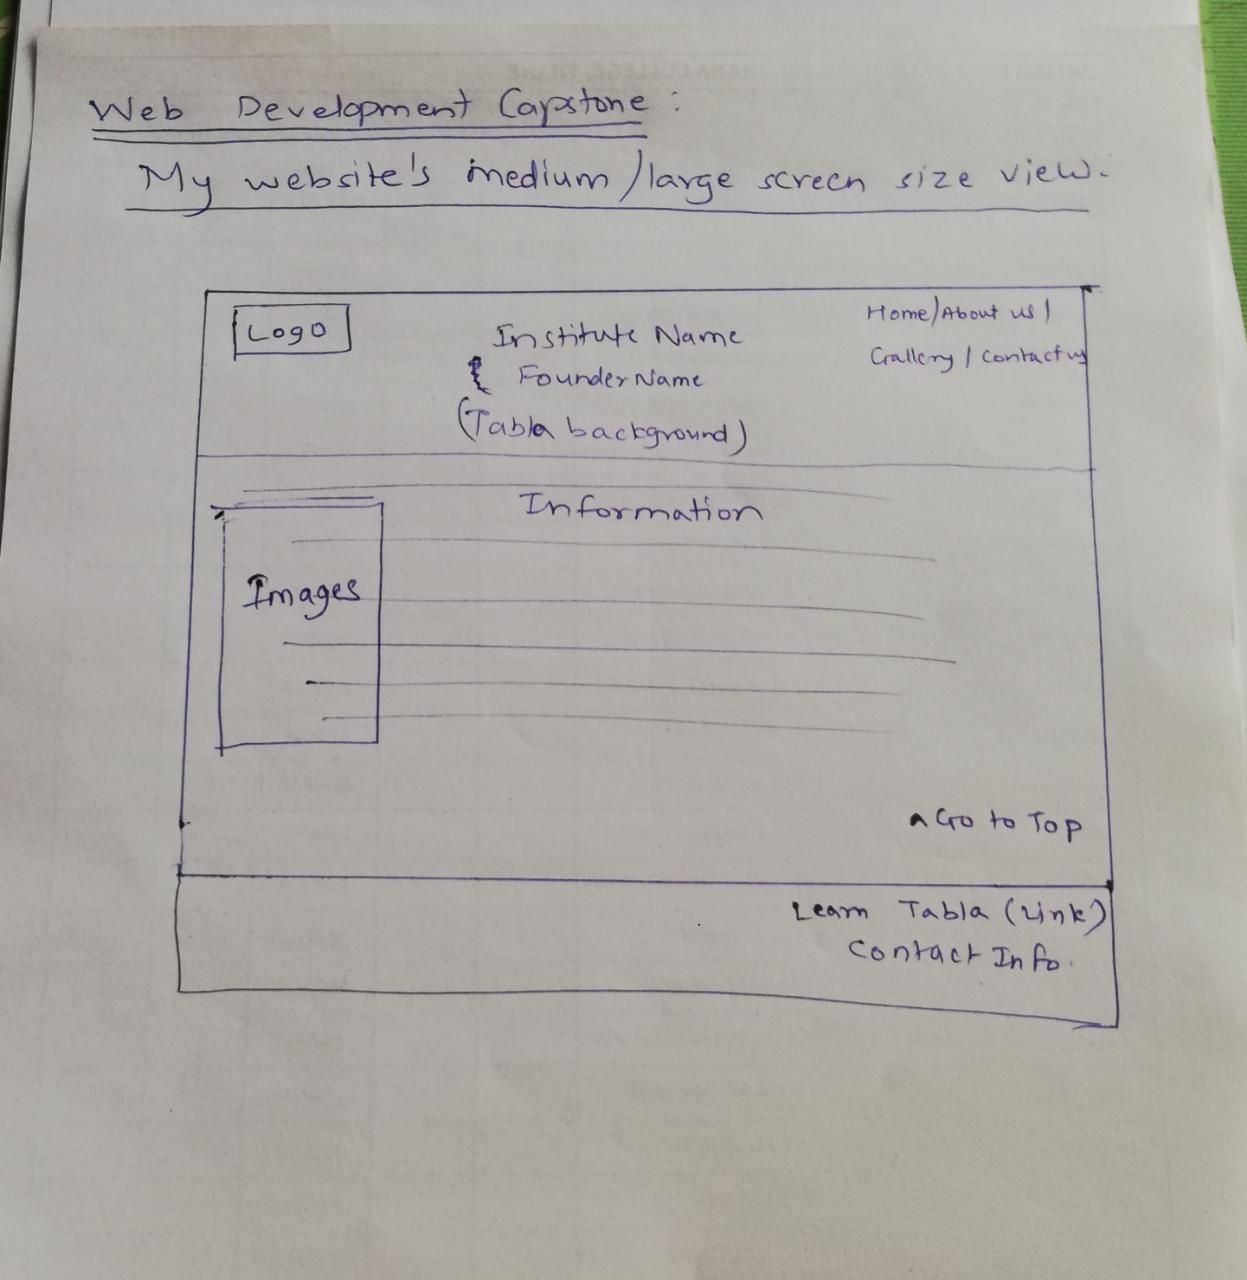 Web Development Capstone :
My website's medium/large screen size view.
Logo
Institute Name
Founder Name
(Tabla background)
Home/About us /
Gallery / Contact us
Information
Images
^ Go to Top
Learn Tabla (Link)
Contact Info.